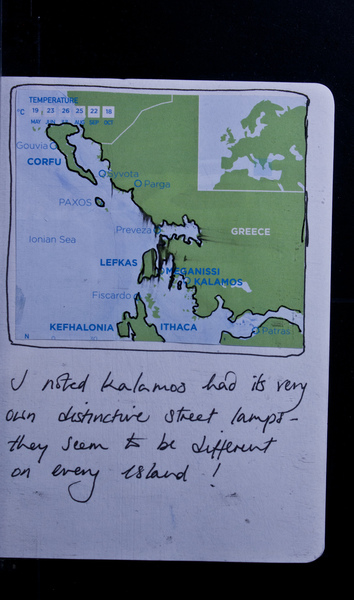 TEMPERATURE
°C 19 23 26 25 22 18
MAY JUN JUL AUG SEP OCT
Gouvia
CORFU
Syvota
Parga
PAXOS
Preveza
GREECE
Ionian Sea
LEFKAS
MEGANISSI
KALAMOS
Fiscardo
KEFHALONIA
ITHACA
Patras
N
I noted Kalamos had its very
own distinctive street lamps -
they seem to be different
on every island !